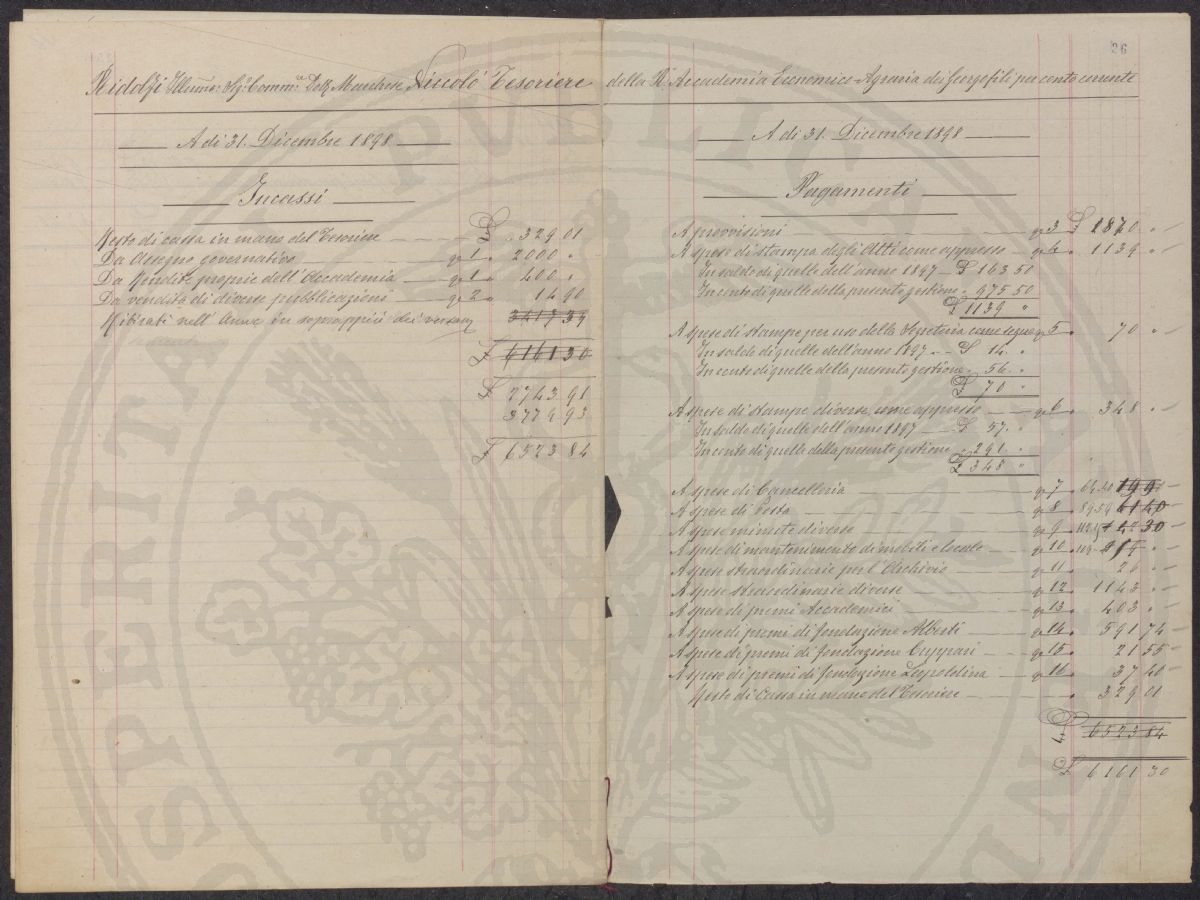 Ridolfi Illmo: Sigr Commre Dott Marchese Niccoló Tesoriere
A di 31. Dicembre 1898
Incassi
Resto di cassa in mano del Tesoriere £ " 329 01
Da Assegno governativo qo 1 " 2000 "
Da Rendite proprie dell'Accademia qo 1 " 400 "
Da vendita di diverse pubblicazioni qo 2 " 14 90
Ritirati nell'Anno in soprappiù dei versam 3417 39
£ 6161 30
£ 2743 91
3779 93
£ 6523 84
26
della Ra Accademia Economico-Agraria dei Georgofili per conto corrente
A di 31. Dicembre 1898
Pagamenti
A provvisioni qo 3 £ 1870 "
A spese di stampa degli Atti come appresso qo 4 " 1139 "
In saldo di quelle dell'anno 1897 £ 163 50
In conto di quelle della presente gestione " 975 50
£ 1139 "
A spese di stampe per uso della Segreteria come segue qo 5 " 70 "
In saldo di quelle dell'anno 1897 £ 14. "
In conto di quelle della presente gestione " 56. "
£ 70 "
A spese di stampe diverse, come appresso qo 6 " 348 "
In saldo di quelle dell'anno 1897 £ 57. "
In conto di quelle della presente gestione " 291. "
£ 348 "
A spese di Cancelleria qo 7 "
A spese di Posta qo 8 " 61 40
A spese minute diverse qo 9 "
A spese di mantenimento di mobili e locale qo 10 "
A spese straordinarie per l'Archivio qo 11 " 26 "
A spese straordinarie diverse qo 12 " 1143 "
A spese di premi Accademici qo 13 " 403 "
A spese di premi di fondazione Alberti qo 14 " 591 74
A spese di premi di fondazione Cuppari qo 15 " 21 55
A spese di premi di fondazione Leopoldina qo 16 " 37 40
Resto di Cassa in mano del Tesoriere " 329 01
£ 6523 84
£ 6161 30
PROSPERITATI PUBLICAE